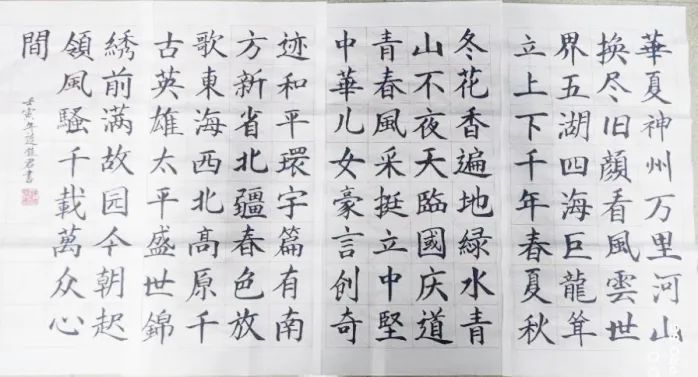 華夏神州万里河山
换尽旧顔看風雲世
界五湖四海巨龍耸
立上下千年春夏秋
冬花香遍地緑水青
山不夜天臨國庆道
青春風采挺立中堅
中華儿女豪言创奇
迹和平環宇篇有南
方新省北疆春色放
歌東海西北髙原千
古英雄太平盛世錦
綉前满故园今朝起
領風騷千載萬众心
間
壬寅年書